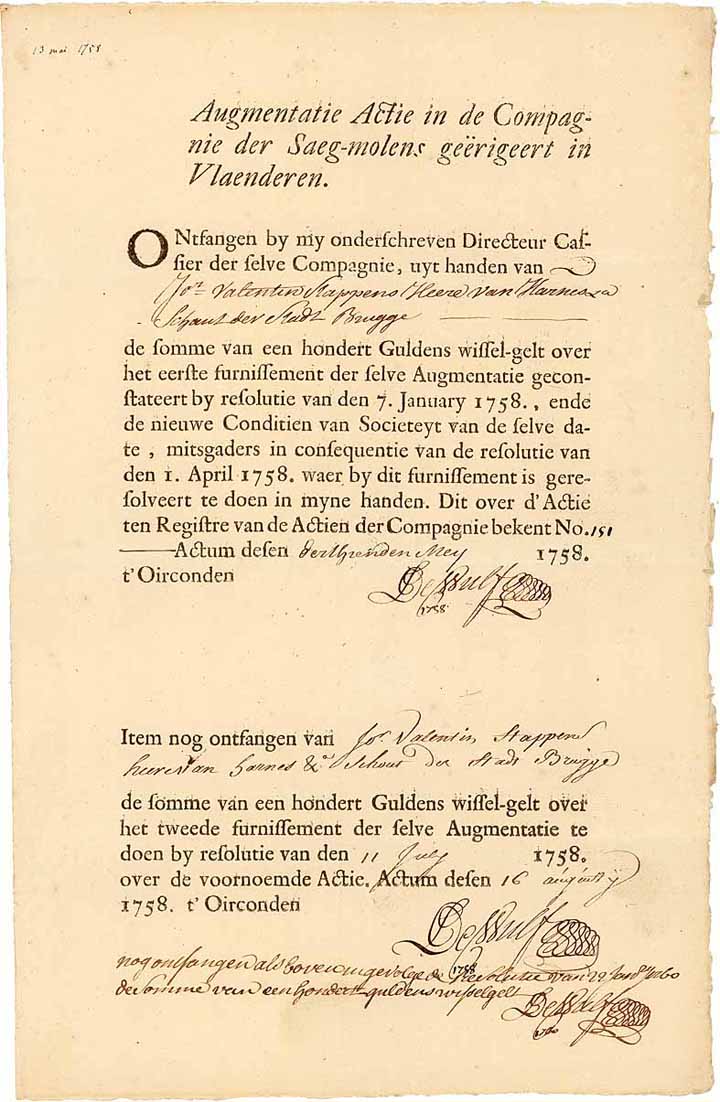 13 mai 1758
Augmentatie Actie in de Compag-
nie der Saeg-molens geërigeert in
Vlaenderen.
ONtfangen by my onderschreven Directeur Caſ-
ſier der ſelve Compagnie, uyt handen van
Jor. Valentin Stappens Heere van Harnes &a
Schaut der Stadt Brugge
de ſomme van een hondert Guldens wiſſel-gelt over
het eerſte furniſſement der ſelve Augmentatie gecon-
ſtateert by reſolutie van den 7. January 1758., ende
de nieuwe Conditien van Societeyt van de ſelve da-
te, mitsgaders in conſequentie van de reſolutie van
den 1. April 1758. waer by dit furniſſement is gere-
ſolveert te doen in myne handen. Dit over d'Actie
ten Regiſtre van de Actien der Compagnie bekent No. 151
Actum deſen derthienden Mey 1758.
t'Oirconden
De Wulf
1758
Item nog ontfangen van Jor. Valentin Stappens
heere van harnes &a Schout der Stadt Brugge
de ſomme van een hondert Guldens wiſſel-gelt over
het tweede furniſſement der ſelve Augmentatie te
doen by reſolutie van den 11 July 1758.
over de voornoemde Actie. Actum deſen 16 augusty
1758. t'Oirconden
De Wulf
1758
nog ontfangen als boven ingevolge de Resolutie van 22 1760
de Somme van een hondert guldens wisselgelt
De Wulf
1760